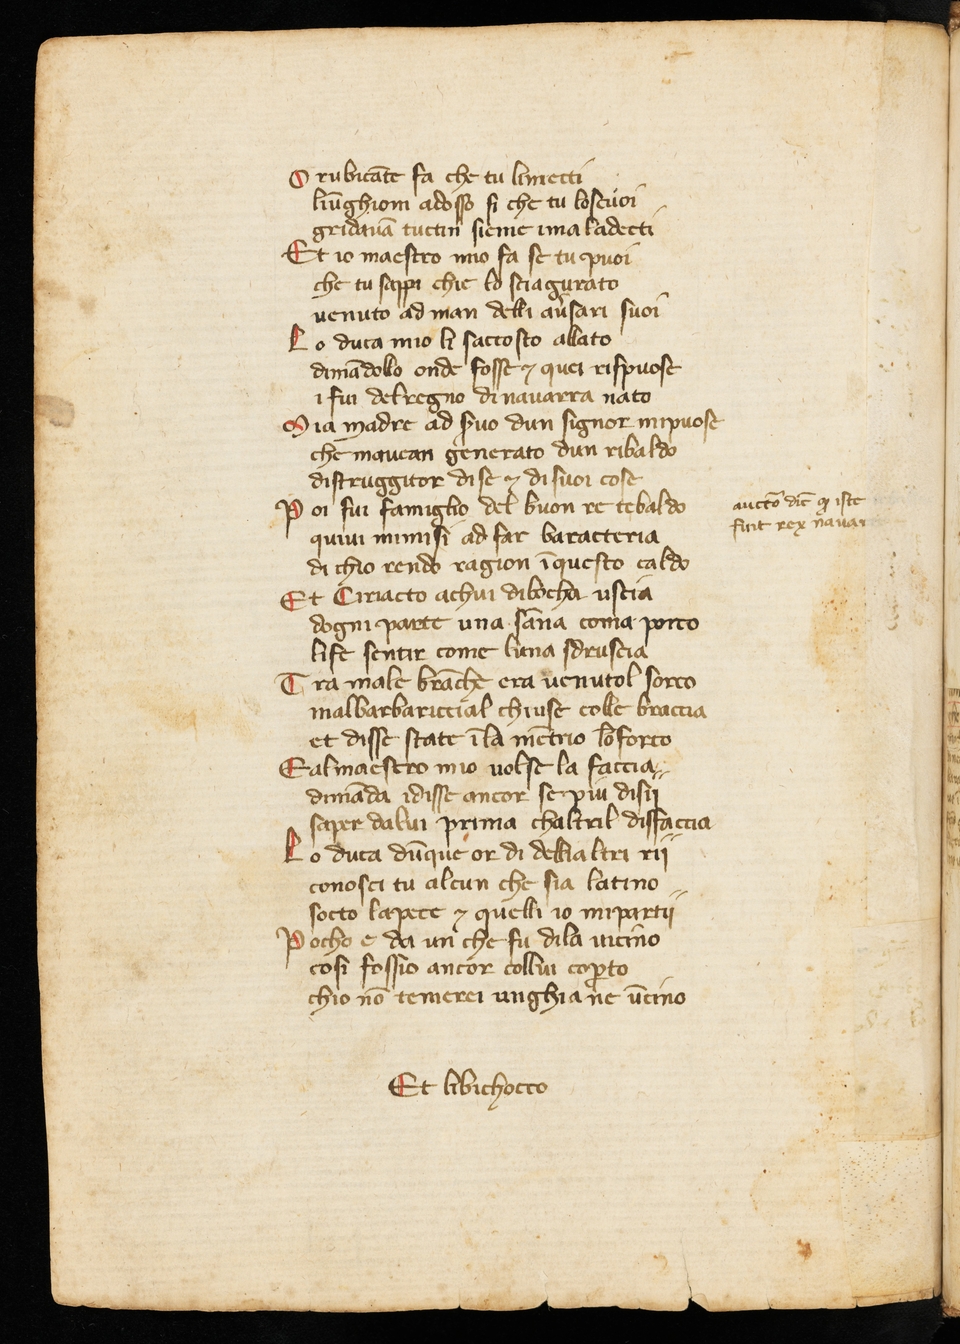 O rubicāte fa che tu limecti
liūghioni adosso si che tu loscuoi
gridauā tuctin sieme imaladecti
Et io maestro mio fa se tu puoi
che tu sappi chie lo sciagurato
uenuto ad man delli aūsari suoi
Lo duca mio li saccosto allato
dimādollo onde fosse ⁊ quei rispuose
i fui delregno dinauarra nato
Mia madre ad s̄uo dun signor mipuose
che mauean generato dun ribaldo
distruggitor dise ⁊ disuoi cose
Poi fui famiglio del buon re tebaldo
auctō dic̄ ꝙ iste
fuit rex nauar
quiui mimisi ad far baracteria
di chio rendo ragion īquesto caldo
Et Ciriacto achui dibocha uscia
dogni parte una sāna coma porco
life sentir come luna sdruscia
Tra male brāche era uenutol sorco
malbarbariccial chiuse colle braccia
et disse state īla mētrio lōforco
Ealmaestro mio uolse la faccia
dimāda idisse ancor se piu disii
saper dalui prima chaltril disfaccia
Lo duca dūque or di dellialtri rii
conosci tu alcun che sia latino
socto lapece ⁊ quelli io mipartii
Pocho e da un che fu dila uicino
cosi fossio ancor collui cop̄to
chio nō temerei unghia ne ūcino
Et libichocco